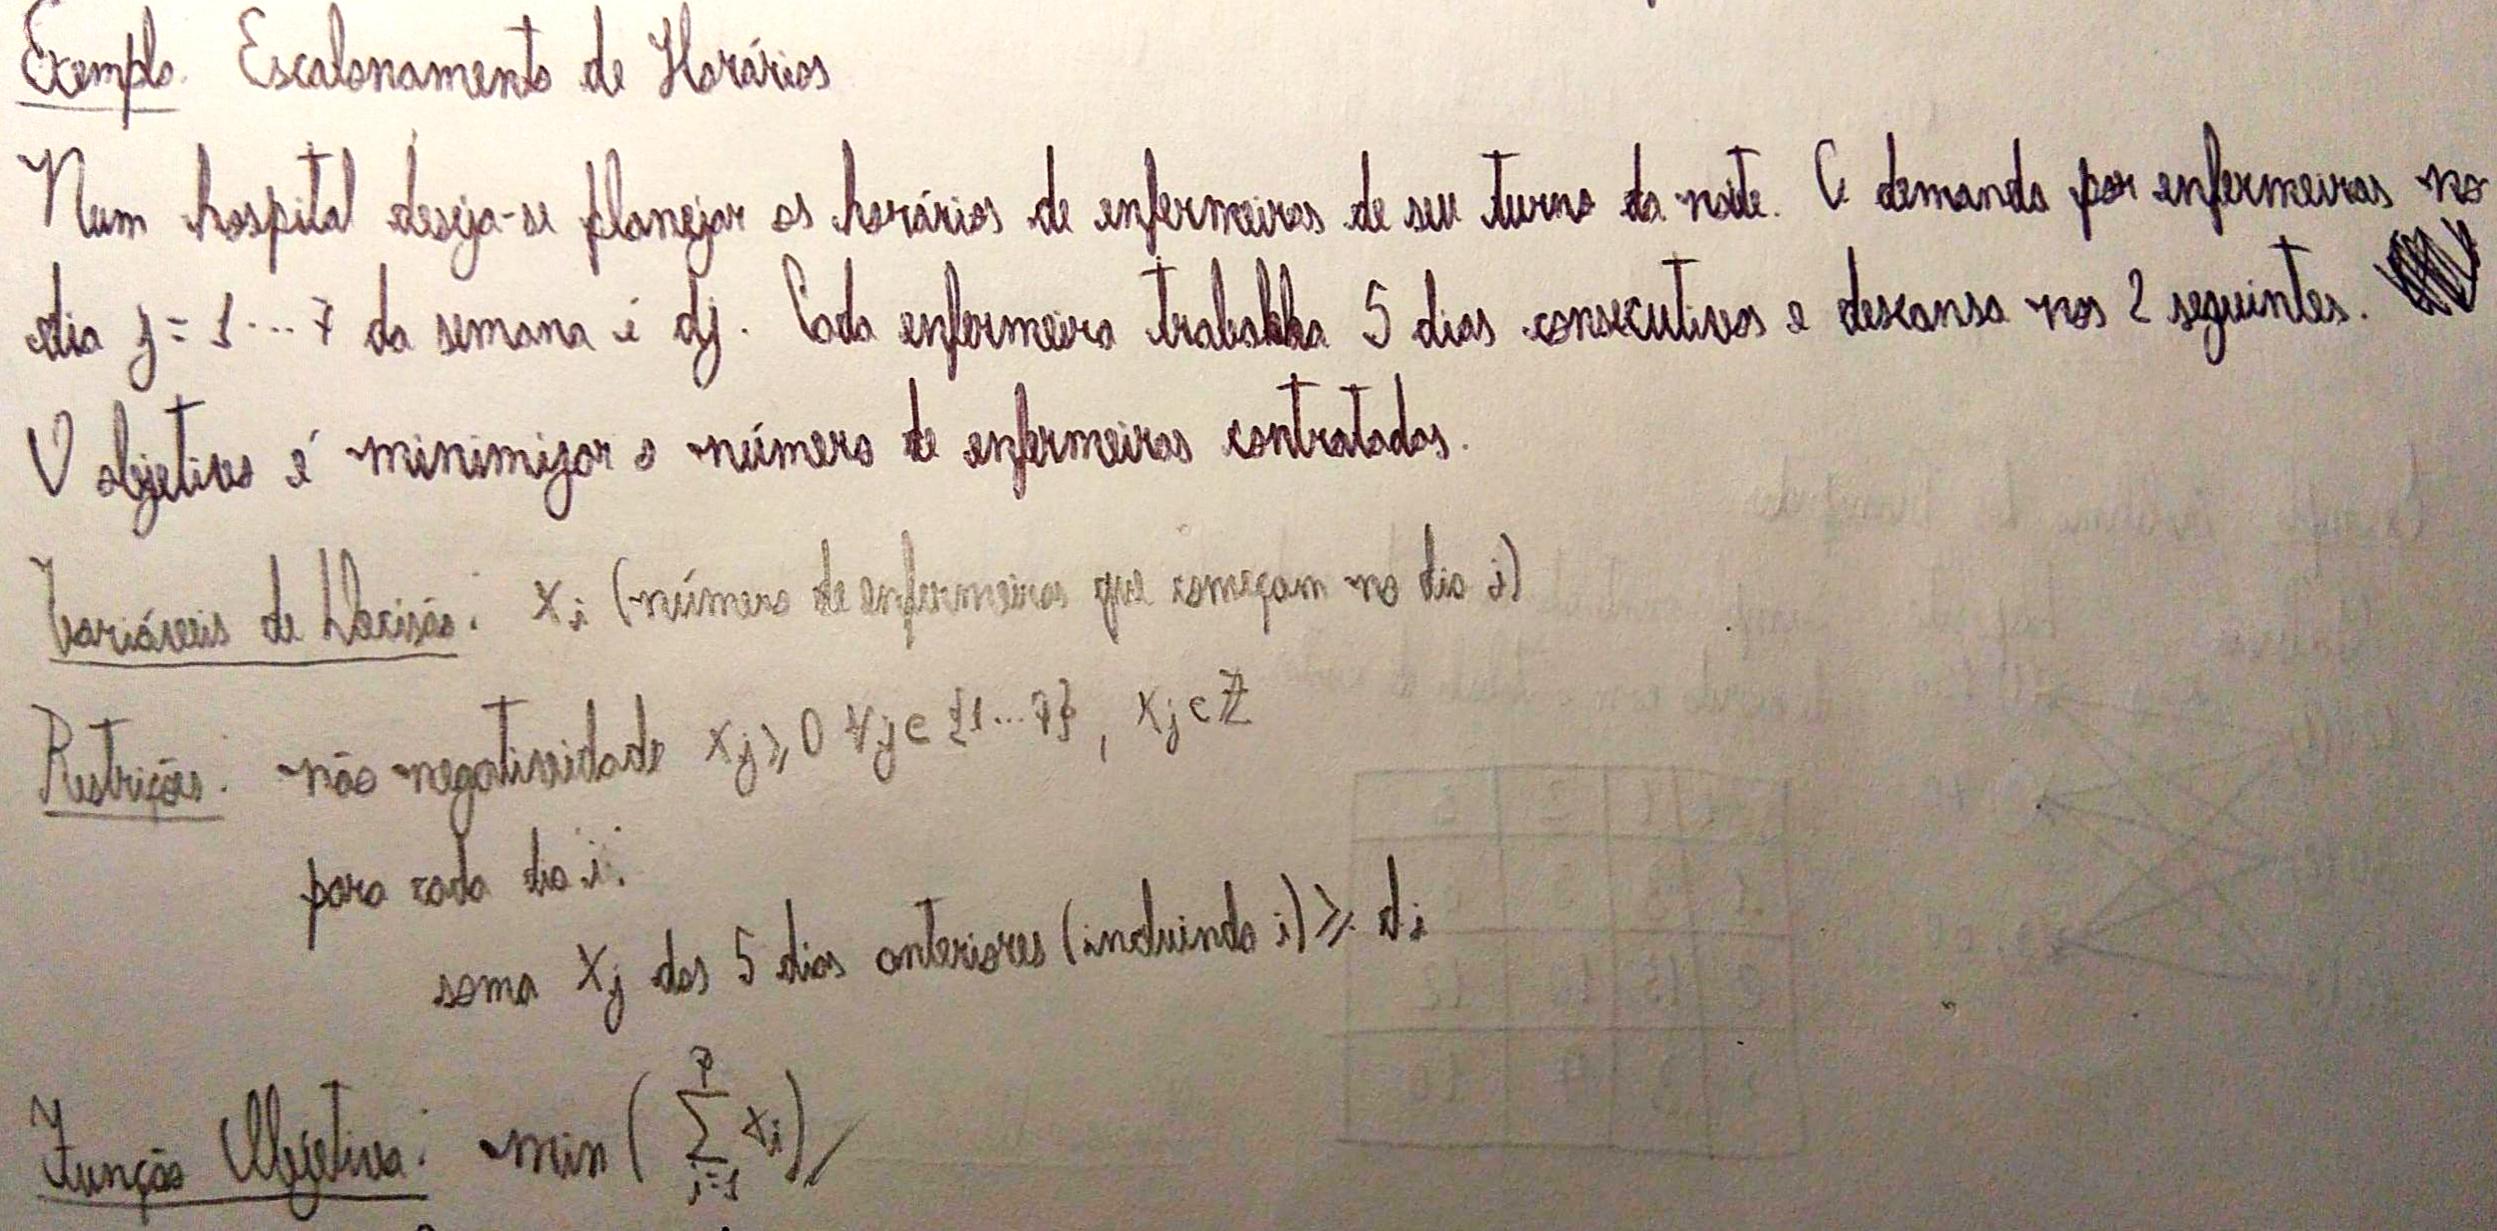 Exemplo. Escalonamento de Horários
Num hospital deseja-se planejar os horários de enfermeiros de seu turno da noite. A demanda por enfermeiras no
dia j = 1 ... 7 da semana é dj. Cada enfermeira trabalha 5 dias consecutivos e descansa nos 2 seguintes.
O objetivo é minimizar o número de enfermeiras contratadas.
Variáveis de Decisão: xi (número de enfermeiras que começam no dia i)
Restrições: não negatividade xj ≥ 0 ∀j ∈ {1 ... 7}, xj ∈ ℤ
para cada dia i:
soma xj dos 5 dias anteriores (incluindo i) ≥ di
Função Objetiva: min ( 7 ∑ i=1 xi )